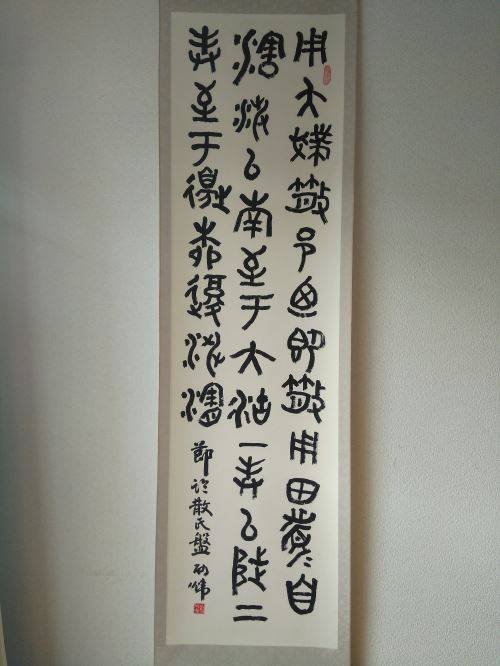 用夨撲散邑迺即散用田眉自
瀗涉以南至于大沽一封以陟二
封至于邊柳復涉瀗
節臨散氏盤